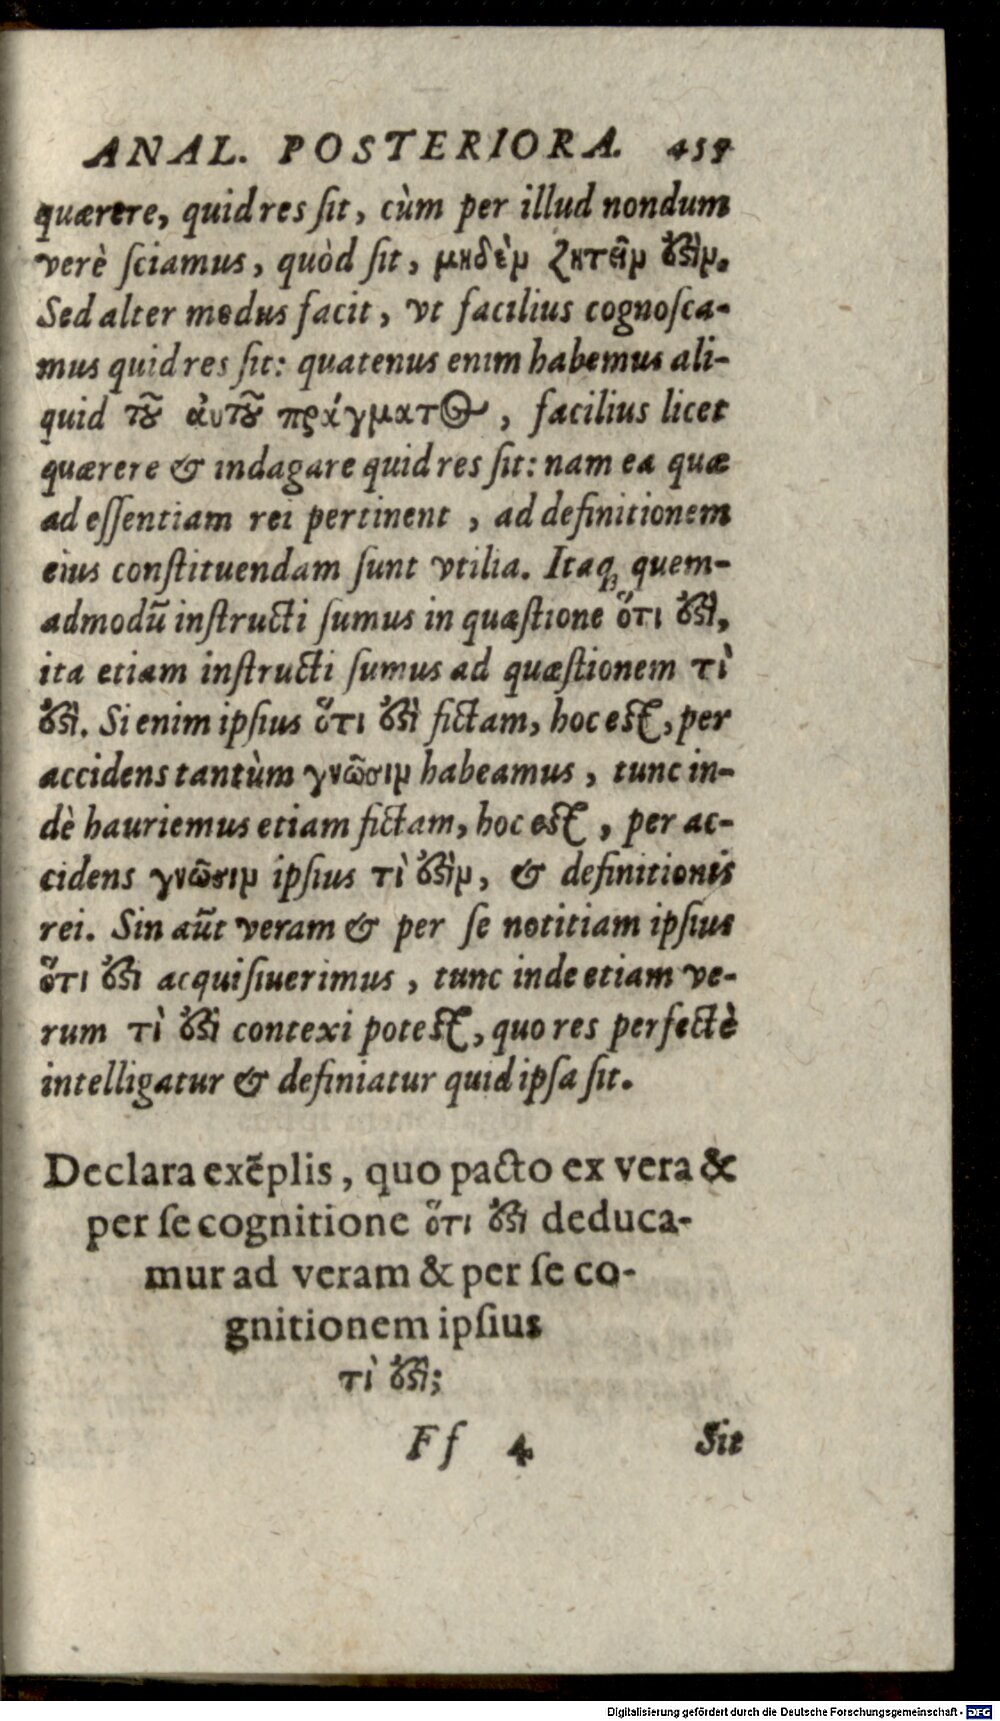 ANAL. POSTERIORA. 459
quærere, quid res ſit, cùm per illud nondum
verè ſciamus, quòd ſit, μηδὲν ζητεῖν ἐστὶν.
Sed alter modus facit, vt facilius cognoſca-
mus quid res ſit: quatenus enim habemus ali-
quid τοῦ ἀυτοῦ πράγματος, facilius licet
quærere & indagare quid res ſit: nam ea quæ
ad eſſentiam rei pertinent, ad definitionem
eius conſtituendam ſunt vtilia. Itaq; quem-
admodū inſtructi ſumus in quæſtione ὅτι ἐστὶ,
ita etiam inſtructi ſumus ad quæſtionem τὶ
ἐστὶ. Si enim ipſius ὅτι ἐστὶ fictam, hoc eſt, per
accidens tantùm γνῶσιν habeamus, tunc in-
dè hauriemus etiam fictam, hoc eſt, per ac-
cidens γνῶσιν ipſius τὶ ἐστὶν, & definitionis
rei. Sin aūt veram & per ſe notitiam ipſius
ὅτι ἐστι acquiſiuerimus, tunc inde etiam ve-
rum τὶ ἐστὶ contexi poteſt, quo res perfectè
intelligatur & definiatur quid ipſa ſit.
Declara exēplis, quo pacto ex vera &
per ſe cognitione ὅτι ἐστι deduca-
mur ad veram & per ſe co-
gnitionem ipſius
τὶ ἐστὶ;
Ff 4 Sit
Digitalisierung gefördert durch die Deutsche Forschungsgemeinschaft - DFG